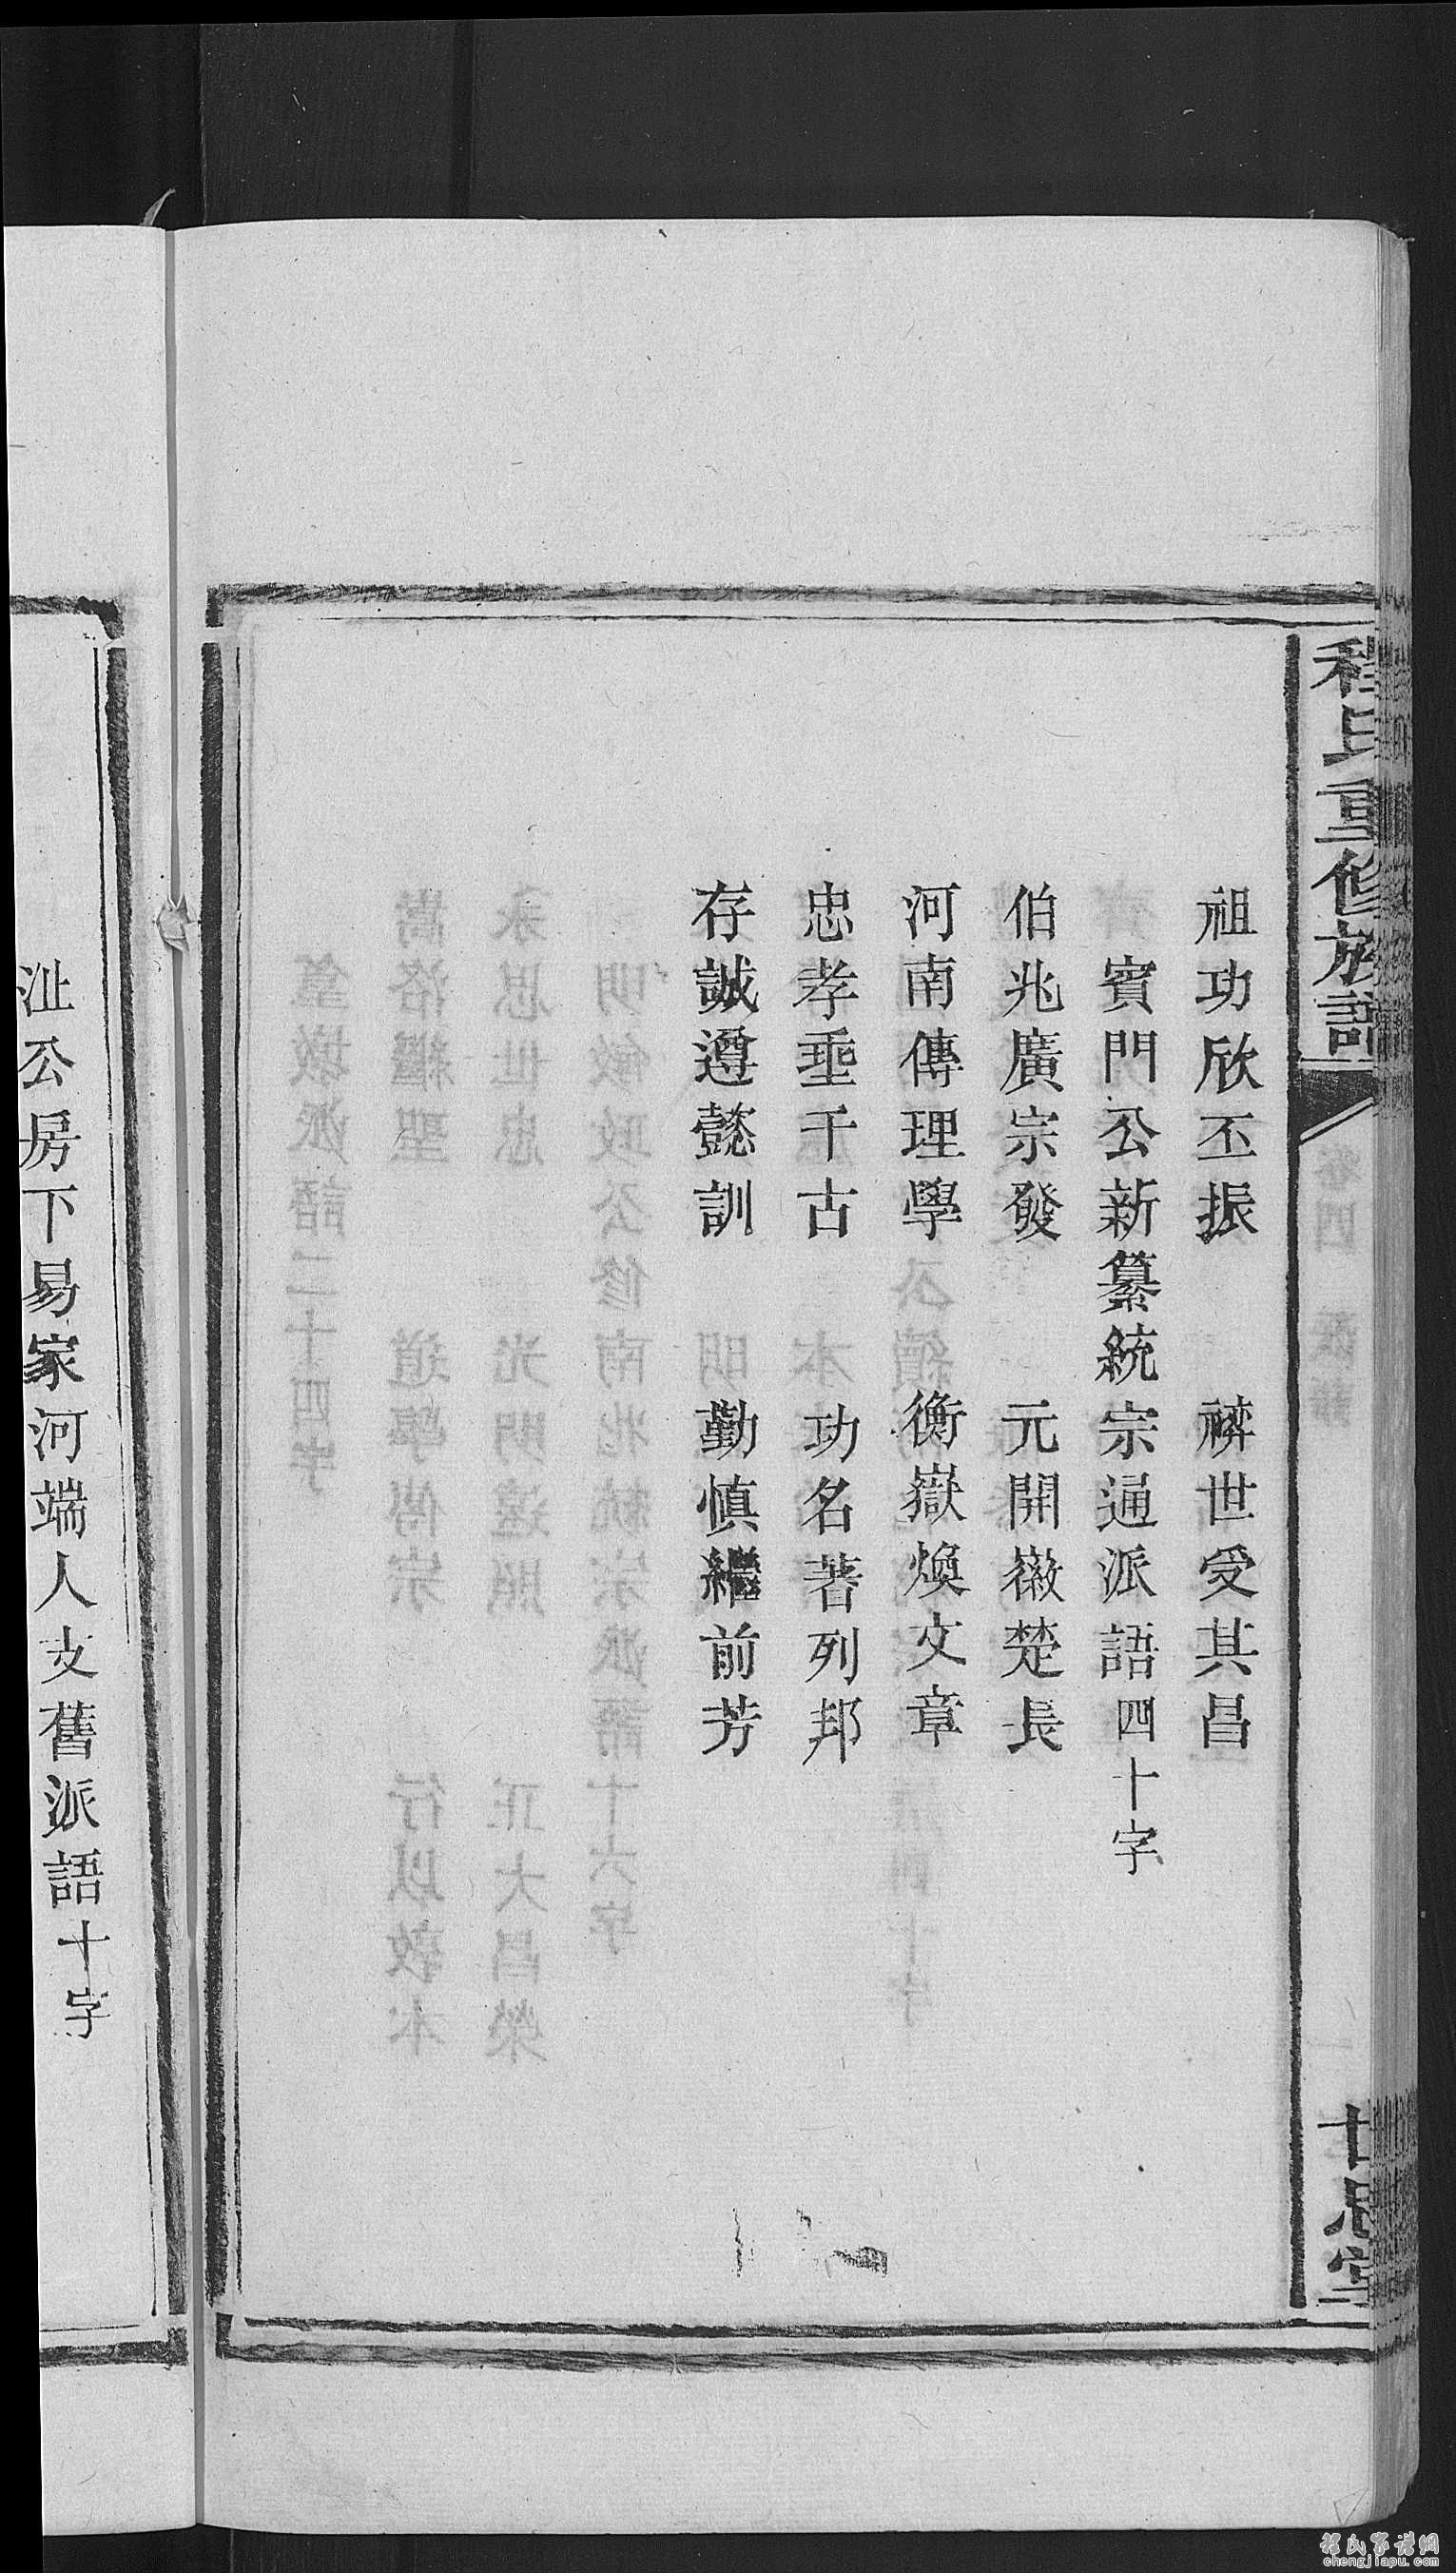 程氏重修族譜
祖功欣丕振 裤世受其昌
賓門公新纂統宗通派語四十字
伯兆廣宗發 元開徽楚長
河南傳理學 衡嶽煥文章
忠孝垂千古 功名著列邦
存誠遵懿訓 勤慎繼前芳
沚公房下易家河端人支舊派語十字
程氏家譜網
chengjiapu.com